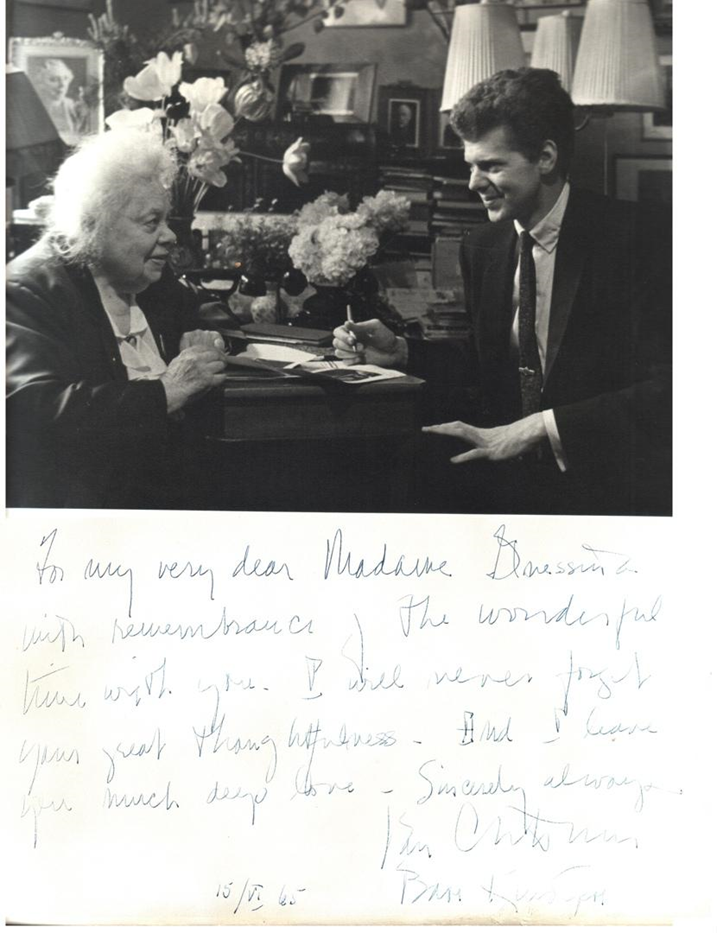 For my very dear Madame Gnessina
with remembrance of the wonderful
time with you. I will never forget
your great thoughtfulness - And I leave
you much deep love - Sincerely always
Van Cliburn
15/VI 65